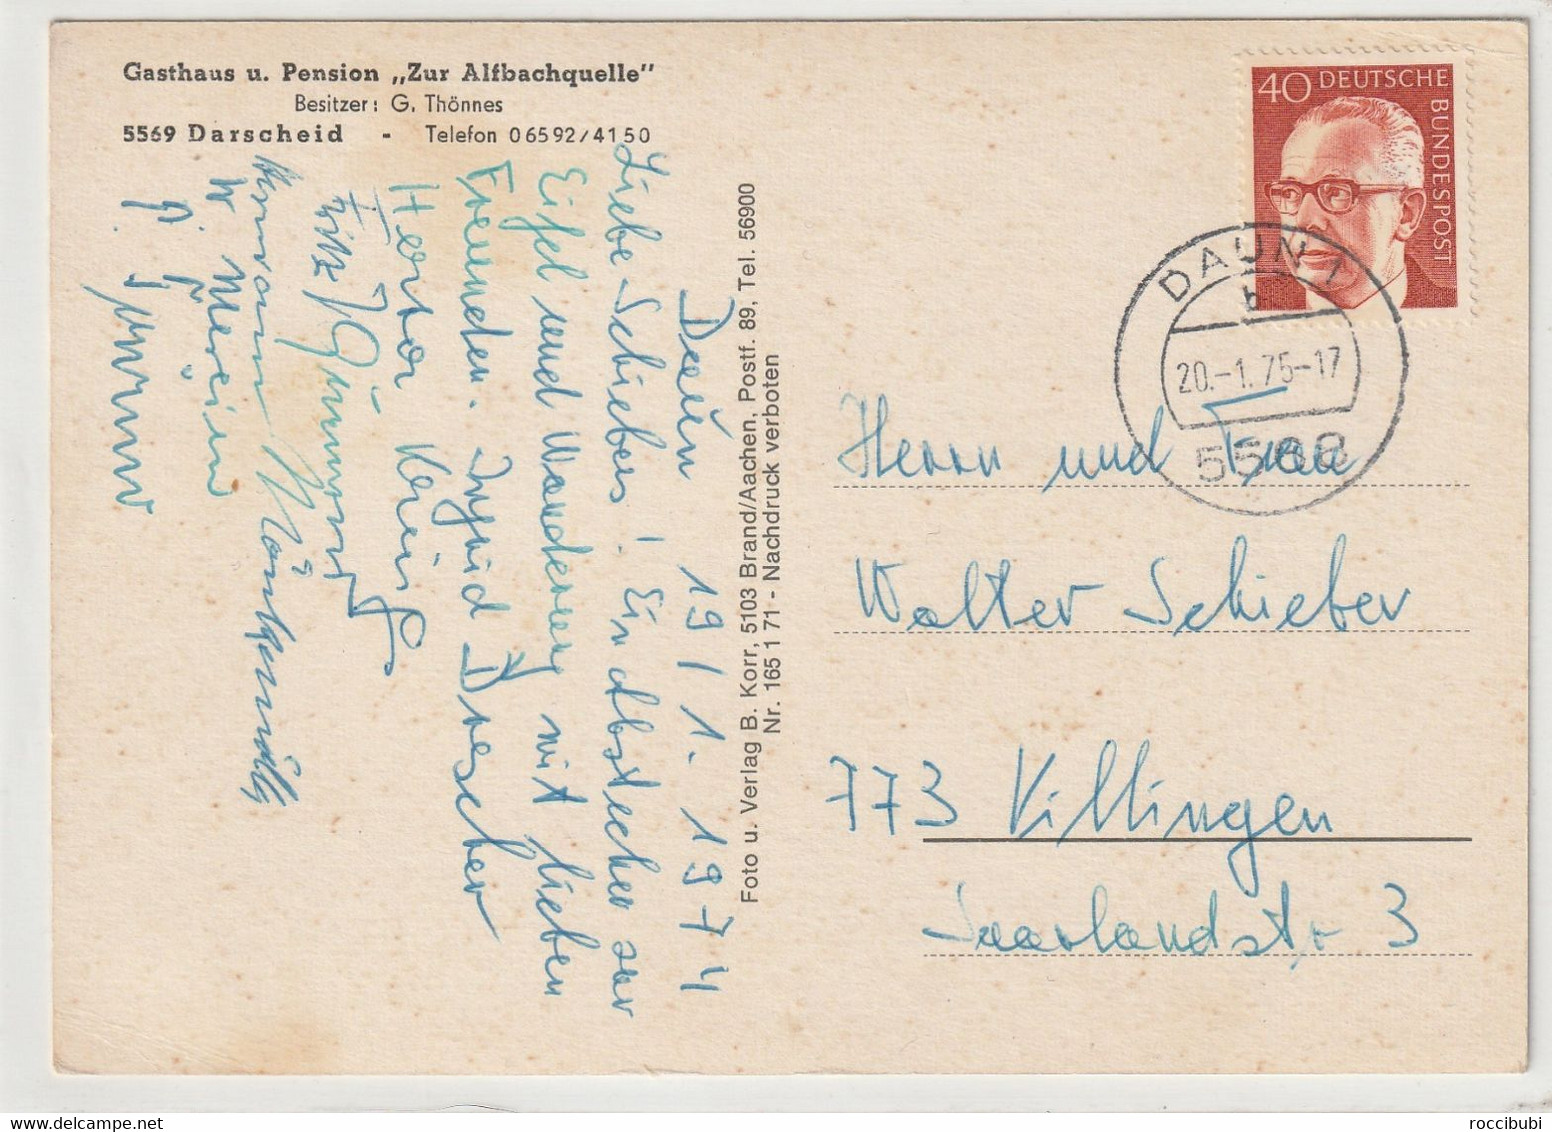 Gasthaus u. Pension „Zur Alfbachquelle"
Besitzer: G. Thönnes
5569 Darscheid - Telefon 06592/4150
Daun 19/1.1974
Liebe Schiebers! Ein Abstecher zur
Eifel und Wanderung mit lieben
Freunden. Ingrid Drescher
Hertor
Foto u. Verlag B. Korr, 5103 Brand/Aachen, Postf. 89, Tel. 56900
Nr. 165 1 71 - Nachdruck verboten
40 DEUTSCHE BUNDESPOST
DAUN 1
b
20.-1.75-17
5568
Herrn und Frau
Walter Schieber
773 Villingen
Saarlandstr 3
roccibubi